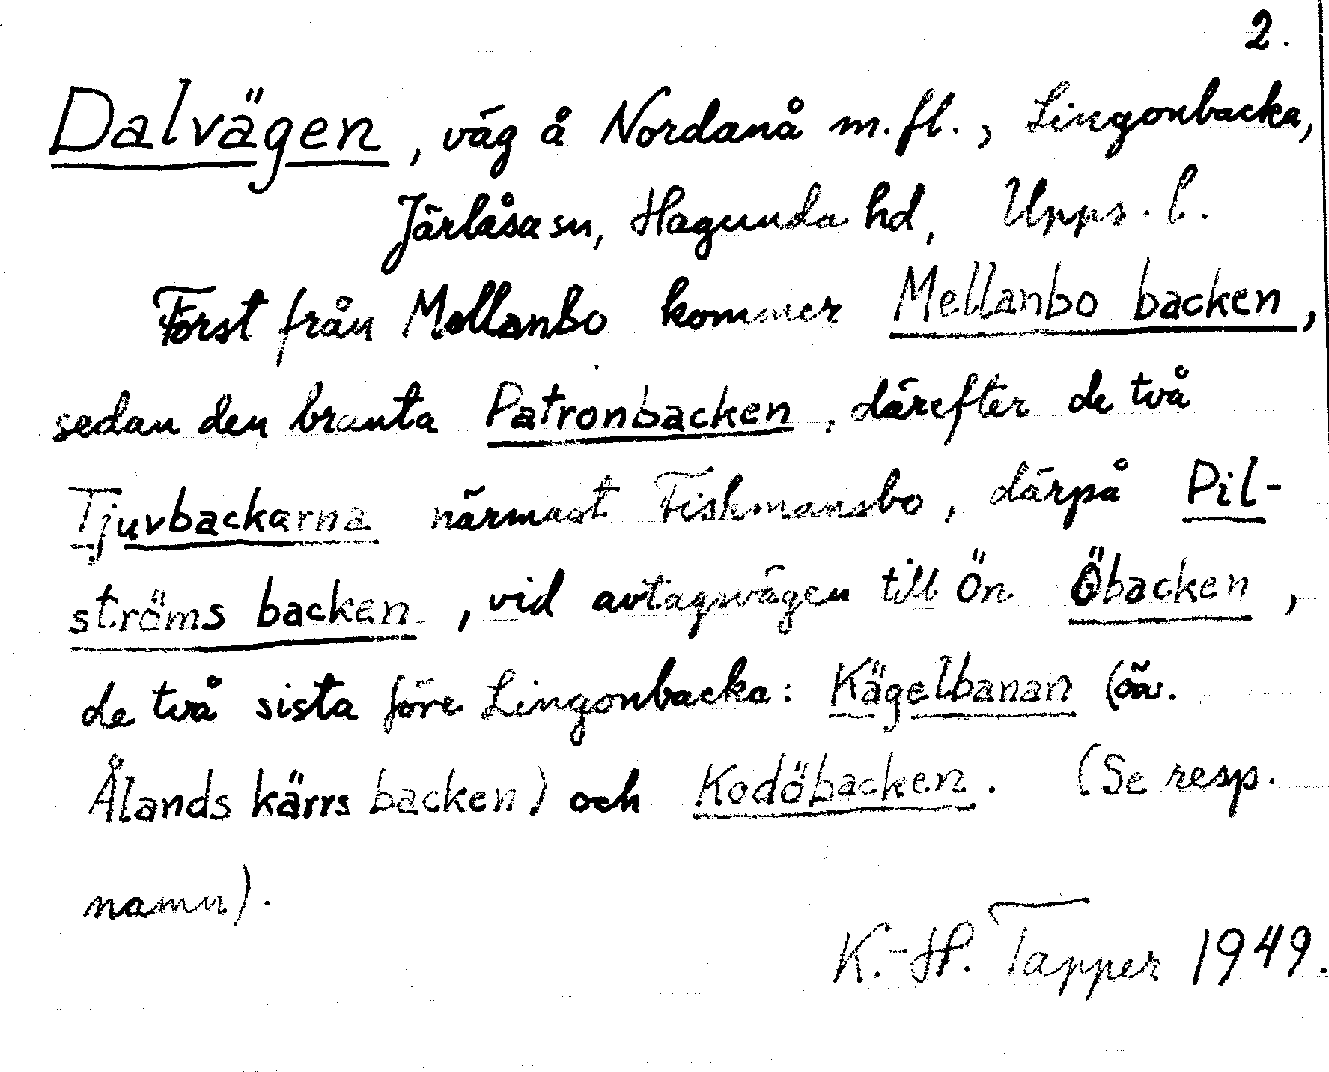 2.
Dalvägen, väg å Nordanå m.fl., Lingonbacka,
Järlåsa sn, Hagunda hd, Upps. l.
Först från Mellanbo kommer Mellanbo backen,
sedan den branta Patronbacken, därefter de två
Tjuvbackarna närmast Fiskmansbo, därpå Pil-
ströms backen, vid avtagsvägen till Ön Öbacken,
de två sista före Lingonbacka: Kägelbanan (äv.
Ålands kärrs backen) och Kodöbacken. (Se resp.
namn).
K.-H. Tapper 1949.